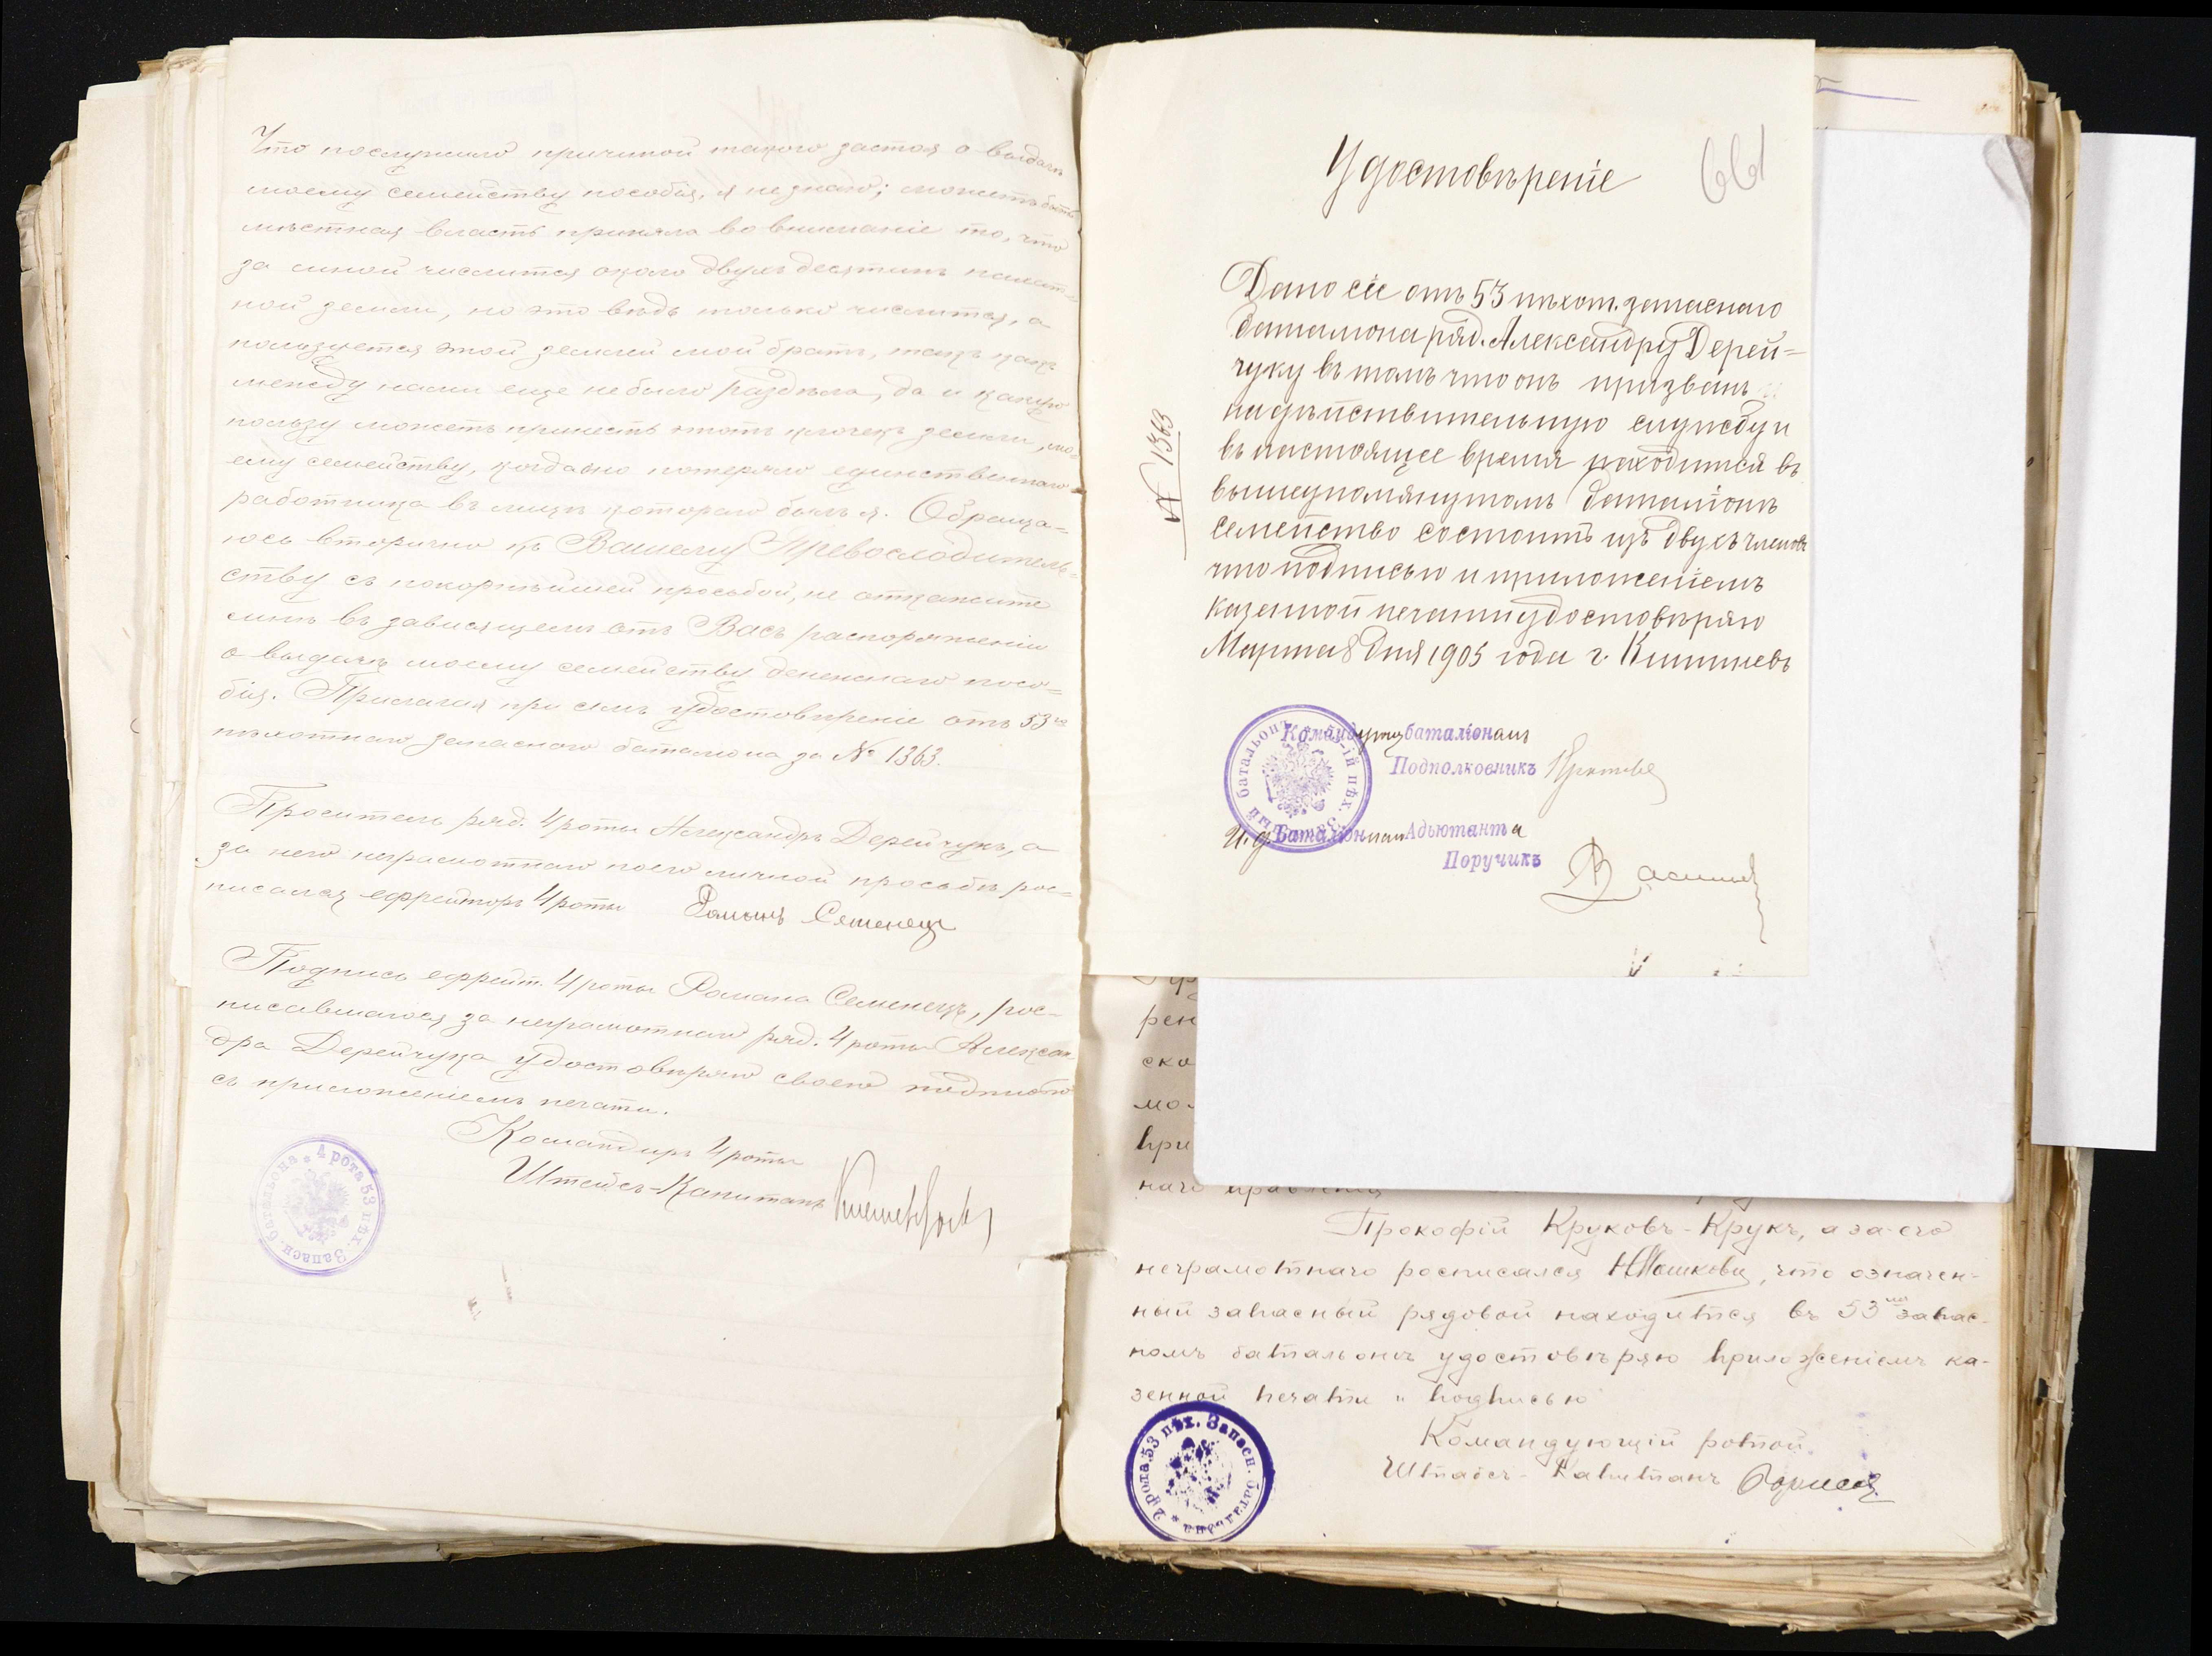 Что послужило причиной такого застоя о выдачѣ
моему семейству пособія, я не знаю; можетъ быть
мѣстная власть приняла во вниманіе то, что
за мной числится около двухъ десятинъ пахат-
ной земли, но это вѣдь только числится, а
пользуется этой землей мой братъ, такъ какъ
между нами еще не было раздѣла, да и какую
пользу можетъ принесть этотъ клочекъ земли, мо-
ему семейству, когда оно потеряло единственнаго
работника въ лицѣ котораго былъ я. Обраща=
юсь вторично къ Вашему Превосходитель=
ству съ покорнѣйшей просьбой, не откажите
мнѣ въ зависящемъ отъ Васъ распоряженіи
о выдачѣ моему семейству денежнаго посо=
бія. Прилагая при семъ удостовѣреніе отъ 53го
пѣхотнаго запаснаго баталіона за № 1363.
Проситель ряд. 4 роты Александръ Дерейчукъ, а
за него неграмотнаго по его личной просьбѣ рос=
писался ефрейторъ 4 роты Романъ Семенецъ
Подпись ефрейт. 4 роты Романа Семенецъ, рос-
писавшагося за неграмотнаго ряд. 4 роты Алексан-
дра Дерейчука удостовѣряю своею подписью
съ приложеніемъ печати.
Командиръ 4 роты
Штабсъ-Капитанъ
4 рота 53 пѣх. Запасн. батальона
Удостовѣреніе
661
№ 1363
Дано сіе отъ 53 пѣхот. запаснаго
баталіона ряд. Александру Дерей=
чуку въ томъ что онъ призванъ
на дѣйствительную службу и
въ настоящее время находится въ
вышеупомянутомъ баталіонѣ
семейство состоитъ изъ двухъ членовъ
что подписью и приложеніемъ
казенной печати удостовѣряю
Марта 8 дня 1905 года г. Кишиневъ
Командующ баталіономъ
Подполковникъ
И. д. Баталіоннаго Адъютанта
Поручикъ
рен
ско
мо
при
наго правленія
Прокофій Круковъ-Крукъ, а за его
неграмотнаго росписался, что означен-
ный запасный рядовой находится въ 53мъ запас-
номъ батальонѣ удостовѣряю приложеніемъ ка-
зенной печати и подписью
Командующій ротой
Штабсъ-Капитанъ
2 рота 53 пѣх. Запасн. батальона